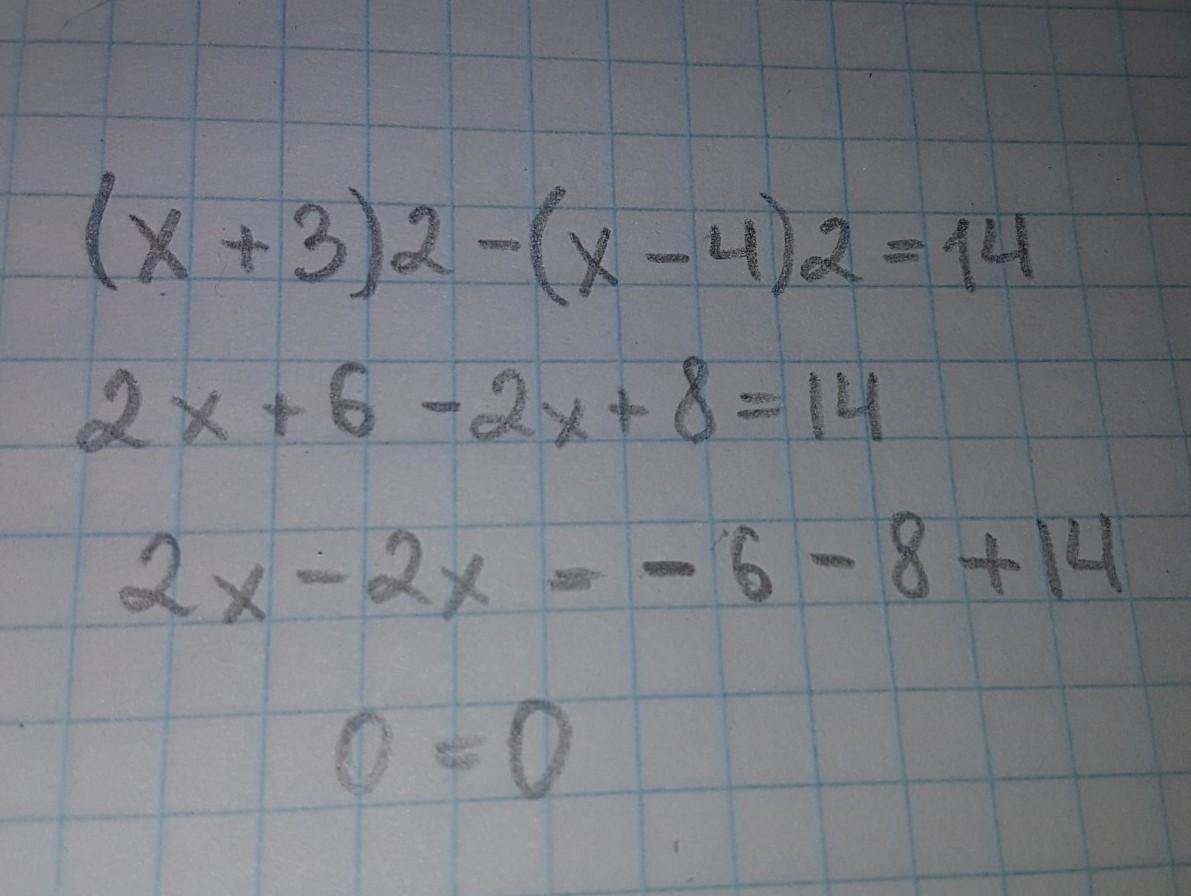 (x + 3)2 - (x - 4)2 = 14
2x + 6 - 2x + 8 = 14
2x - 2x = - 6 - 8 + 14
0 = 0